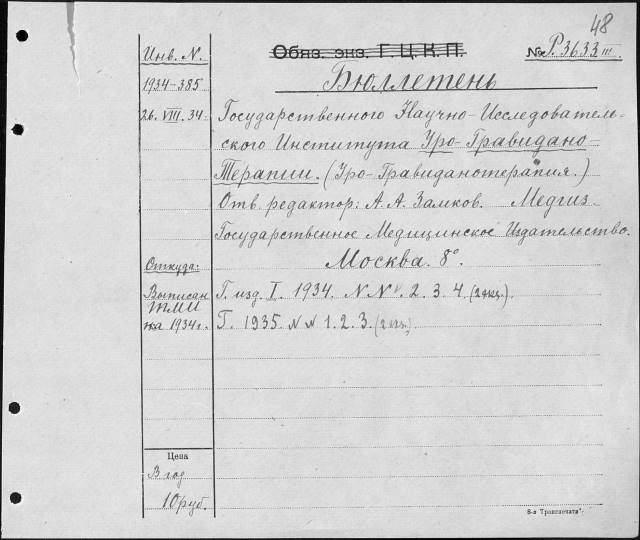 48
Инв. N.
Обяз. экз. Г. Ц. К. П.
№ Р.3633 III
Бюллетень
1934-385
26. VIII. 34.
Государственного Научно-Исследователь-
ского Института Уро-Гравидано-
Терапии. (Уро-Гравиданотерапия.)
Отв. редактор: А. А. Замков. Медгиз.
Государственное Медицинское Издательство.
Москва. 8°.
Откуда:
Выписан
на 1934 г.
Г. изд. I. 1934. N N 2. 3. 4. (2 экз.).
Г. 1935. N N 1. 2. 3. (2 экз.)
Цена
В год
10 руб.
8-я "Транспечати".